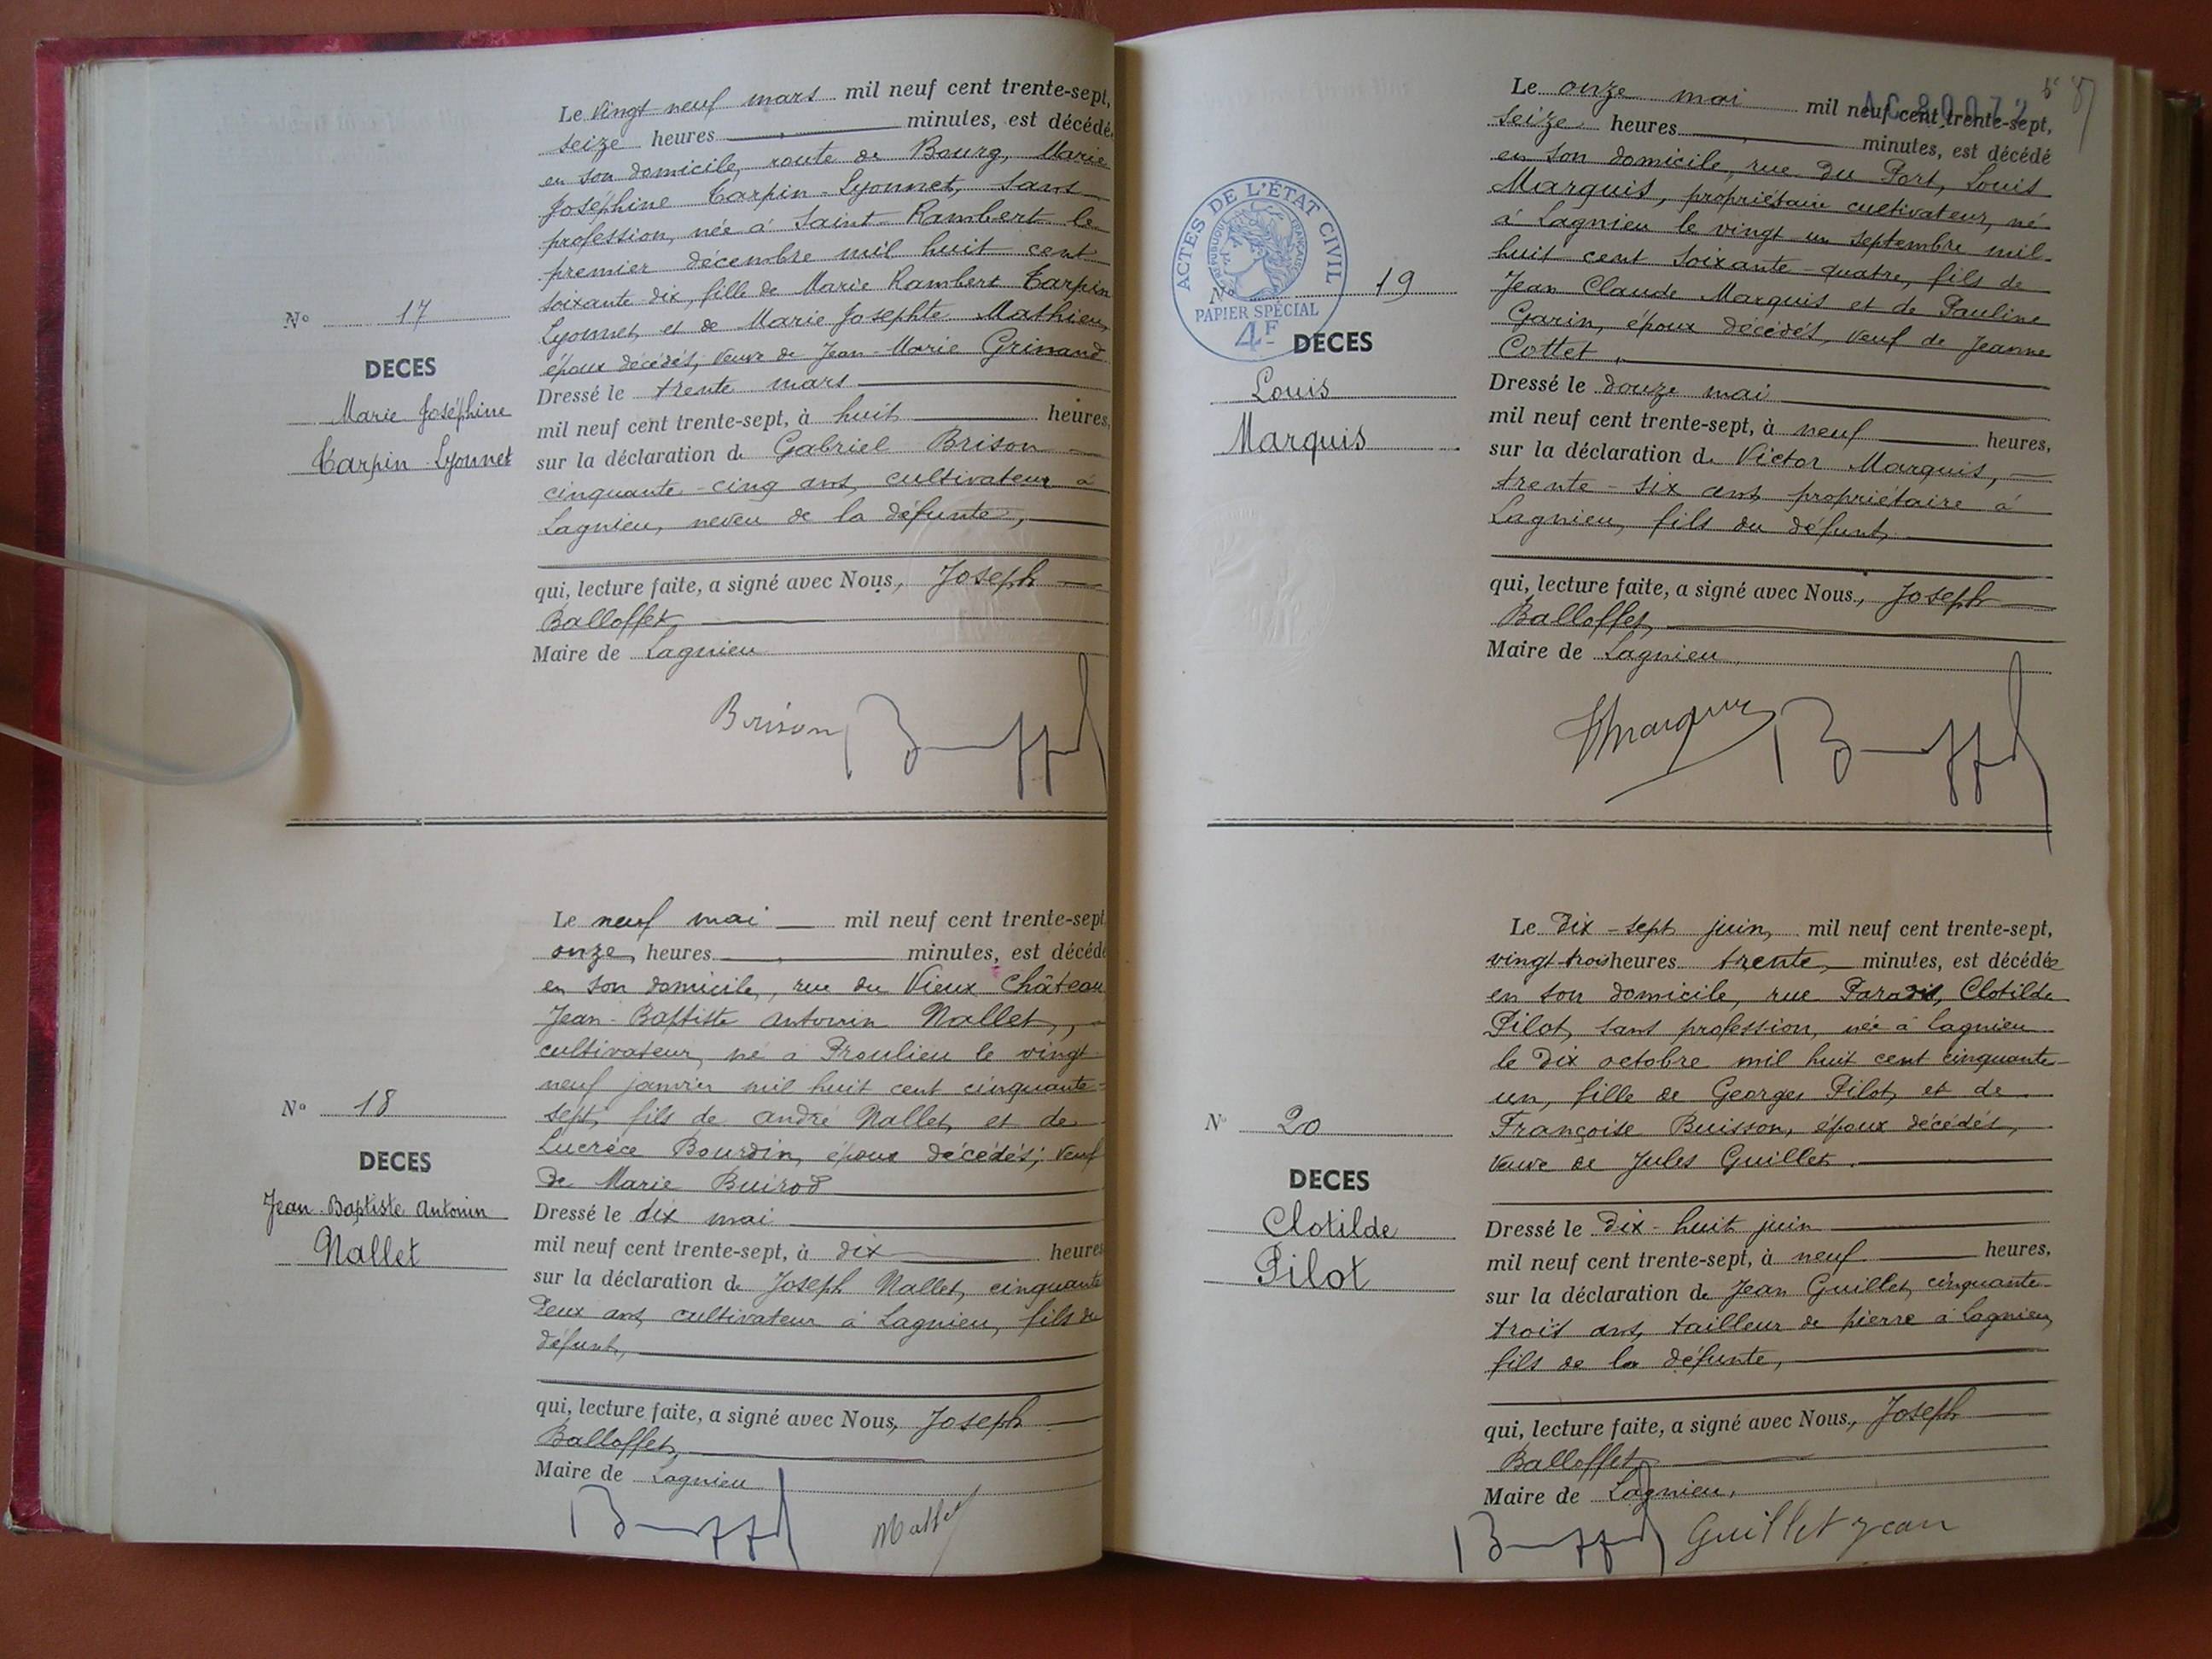 Le vingt neuf mars mil neuf cent trente-sept,
seize heures minutes, est décédé
en son domicile, route de Bourg, Marie
Joséphine Carpin-Lyonnet, sans
profession, née à Saint-Rambert le
premier décembre mil huit cent
soixante-dix, fille de Marie Rambert Carpin
Lyonnet et de Marie Josephte Mathieu,
époux décédés, veuve de Jean-Marie Grinand
Nº 17
DECES
Marie Joséphine
Carpin-Lyonnet
Dressé le trente mars
mil neuf cent trente-sept, à huit heures,
sur la déclaration de Gabriel Brison
cinquante-cinq ans, cultivateur à
Lagnieu, neveu de la défunte,
qui, lecture faite, a signé avec Nous, Joseph
Balloffet,
Maire de Lagnieu
Brison
Le neuf mai mil neuf cent trente-sept
onze heures minutes, est décédé
en son domicile, rue du Vieux Château
Jean-Baptiste Antonin Nallet,
cultivateur, né à Proulieu le vingt
neuf janvier mil huit cent cinquante-
sept, fils de André Nallet, et de
Lucrèce Bourdin, époux décédés; veuf
de Marie Buirod
Nº 18
DECES
Jean-Baptiste Antonin
Nallet
Dressé le dix mai
mil neuf cent trente-sept, à dix heures
sur la déclaration de Joseph Nallet, cinquante
deux ans, cultivateur à Lagnieu, fils du
défunt,
qui, lecture faite, a signé avec Nous, Joseph
Balloffet,
Maire de Lagnieu
Nallet
AC 80072
57
Le onze mai mil neuf cent trente-sept,
seize heures minutes, est décédé
en son domicile, rue du Port, Louis
Marquis, propriétaire cultivateur, né
à Lagnieu le vingt un septembre mil
huit cent soixante-quatre, fils de
Jean Claude Marquis et de Pauline
Garin, époux décédés, veuf de Jeanne
Cottet.
ACTES DE L'ÉTAT CIVIL
RÉPUBLIQUE FRANÇAISE
PAPIER SPÉCIAL
4F
Nº 19
DECES
Louis
Marquis
Dressé le douze mai
mil neuf cent trente-sept, à neuf heures,
sur la déclaration de Victor Marquis,
trente-six ans, propriétaire à
Lagnieu, fils du défunt,
qui, lecture faite, a signé avec Nous, Joseph
Balloffet,
Maire de Lagnieu,
Le dix-sept juin, mil neuf cent trente-sept,
vingt-trois heures trente minutes, est décédée
en son domicile, rue Paradis, Clotilde
Pilot, sans profession, née à Lagnieu
le dix octobre mil huit cent cinquante-
un, fille de Georges Pilot, et de
Françoise Buisson, époux décédés,
veuve de Jules Guillet.
Nº 20
DECES
Clotilde
Pilot
Dressé le dix-huit juin
mil neuf cent trente-sept, à neuf heures,
sur la déclaration de Jean Guillet, cinquante-
trois ans, tailleur de pierre à Lagnieu,
fils de la défunte,
qui, lecture faite, a signé avec Nous, Joseph
Balloffet,
Maire de Lagnieu,
Guillet Jean